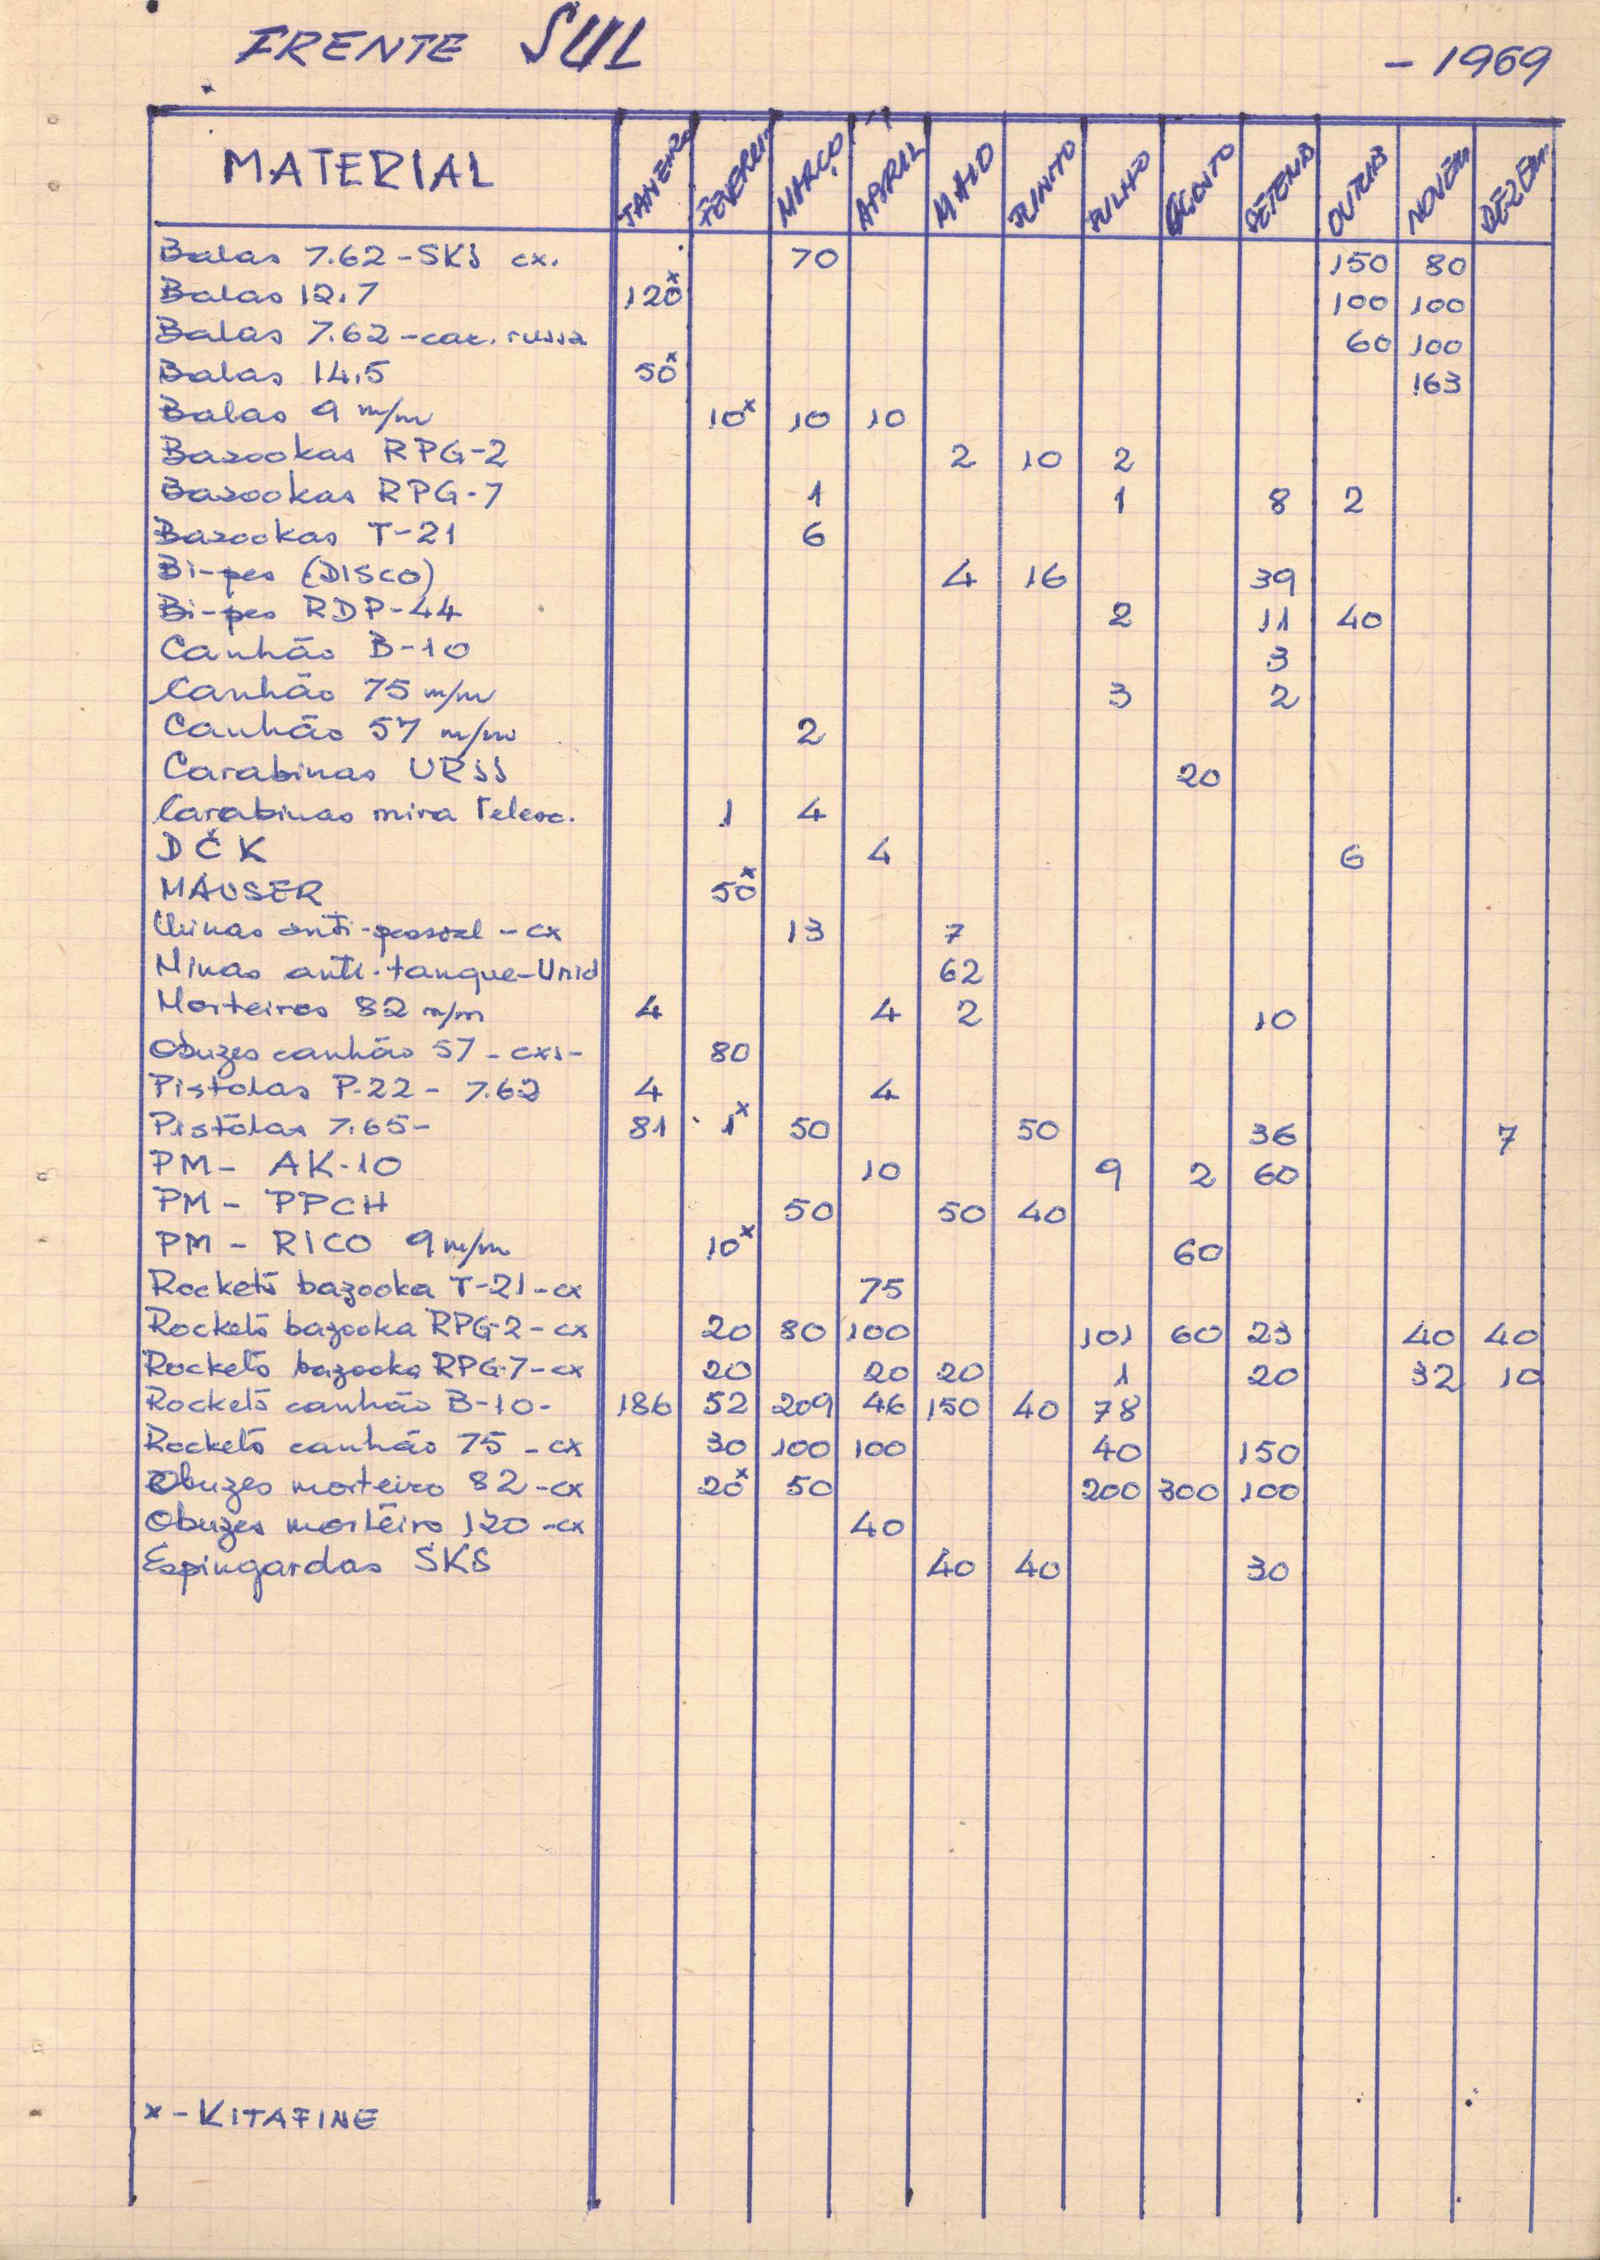 FRENTE SUL - 1969
MATERIAL JANEIRO FEVEREI. MARÇO ABRIL MAIO JUNHO JULHO AGOSTO SETEMB OUTUB NOVEM DEZEM.
Balas 7.62-SKS cx. 70 150 80
Balas 12.7 120x 100 100
Balas 7.62-car. russa 60 100
Balas 14.5 50x 163
Balas 9 m/m 10x 10 10
Bazookas RPG-2 2 10 2
Bazookas RPG-7 1 1 8 2
Bazookas T-21 6
Bi-pes (DISCO) 4 16 39
Bi-pes RDP-44 2 11 40
Canhão B-10 3
Canhão 75 m/m 3 2
Canhão 57 m/m 2
Carabinas URSS 20
Carabinas mira Telesc. 1 4
DČK 4 6
MAUSER 50x
Minas anti-pessoal - cx 13 7
Minas anti-tanque-Unid 62
Morteiros 82 m/m 4 4 2 10
Obuzes canhão 57 - cxs- 80
Pistolas P-22 - 7.62 4 4
Pistolas 7.65- 81 1x 50 50 36 7
PM - AK-10 10 9 2 60
PM - PPCH 50 50 40
PM - RICO 9 m/m 10x 60
Rockets bazooka T-21-cx 75
Rockets bazooka RPG-2-cx 20 80 100 101 60 23 40 40
Rockets bazooka RPG-7-cx 20 20 20 1 20 32 10
Rockets canhão B-10- 186 52 209 46 150 40 78
Rockets canhão 75 - cx 30 100 100 40 150
Obuzes morteiro 82 -cx 20x 50 200 300 100
Obuzes morteiro 120 -cx 40
Espingardas SKS 40 40 30
x - KITAFINE